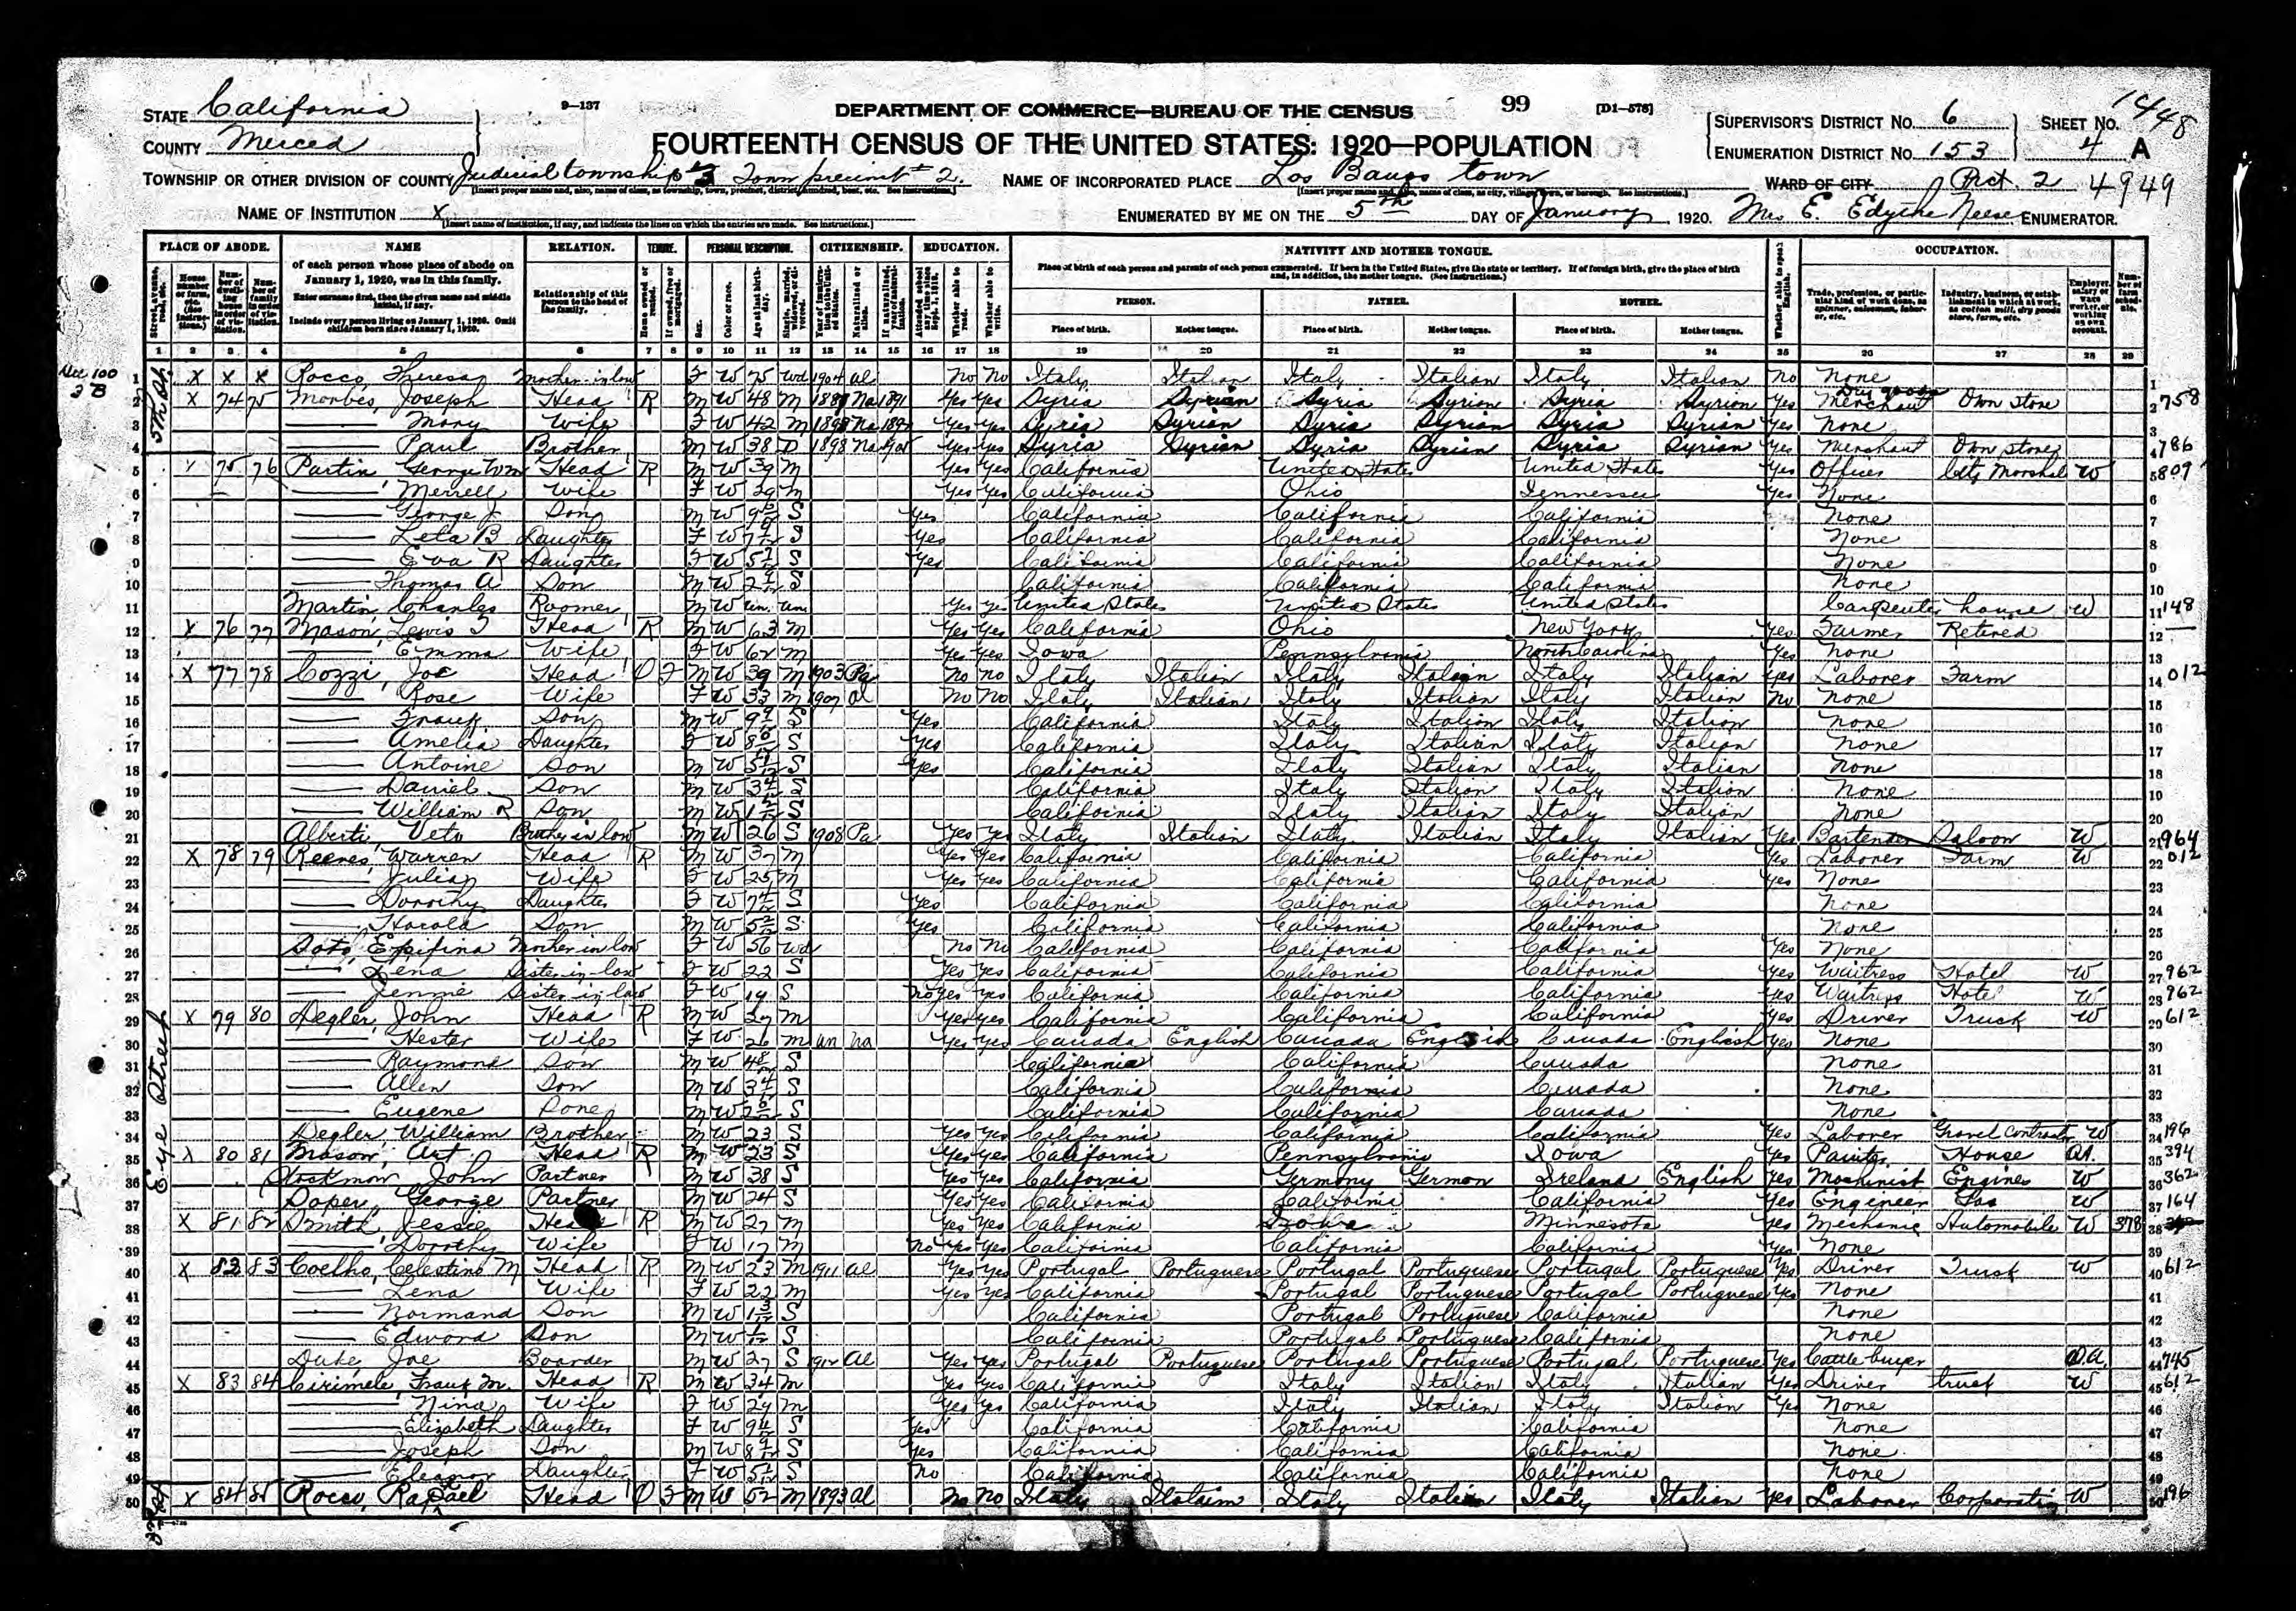 STATE California
COUNTY Merced
9-137
DEPARTMENT OF COMMERCE—BUREAU OF THE CENSUS
99
[D1-578]
FOURTEENTH CENSUS OF THE UNITED STATES: 1920—POPULATION
SUPERVISOR'S DISTRICT No. 6
ENUMERATION DISTRICT No. 153
SHEET No. 4 A
1448
TOWNSHIP OR OTHER DIVISION OF COUNTY Judicial township #3 Town precinct #2.
NAME OF INCORPORATED PLACE Los Banos town
WARD OF CITY Prct. 2 4949
NAME OF INSTITUTION X
ENUMERATED BY ME ON THE 5th DAY OF January, 1920. Mrs E. Edythe Neese ENUMERATOR.
PLACE OF ABODE. NAME RELATION. TENURE. PERSONAL DESCRIPTION. CITIZENSHIP. EDUCATION. NATIVITY AND MOTHER TONGUE. OCCUPATION.
of each person whose place of abode on January 1, 1920, was in this family.
Enter surname first, then the given name and middle initial, if any.
Include every person living on January 1, 1920. Omit children born since January 1, 1920.
Relationship of this person to the head of the family.
Place of birth of each person and parents of each person enumerated. If born in the United States, give the state or territory. If of foreign birth, give the place of birth and, in addition, the mother tongue. (See instructions.)
PERSON. FATHER. MOTHER.
Place of birth. Mother tongue. Place of birth. Mother tongue. Place of birth. Mother tongue.
1 2 3 4 5 6 7 8 9 10 11 12 13 14 15 16 17 18 19 20 21 22 23 24 25 26 27 28 29
5th St.
1 X X X Rocco, Theresa Mother-in-law F W 75 Wd 1904 al No No Italy Italian Italy Italian Italy Italian no None 1
2 X 74 75 Head R M W 48 M Na 1891 Yes Yes Syria Syrian Syria Syrian Syria Syrian Yes Merchant Dry goods Own Store 2 758
3 Mary Wife F W 42 M Na Yes Yes Syria Syrian Syria Syrian Syria Syrian Yes None 3
4 Paul Brother M W 38 D 1898 Na Yes Yes Syria Syrian Syria Syrian Syria Syrian Yes Merchant Own Store 4 786
5 75 76 Partin George Wm Head R M W 39 M Yes Yes California United States United States Yes Officer City Marshal W 5 809
6 Merrell Wife F W 29 M Yes Yes California Ohio Tennessee Yes None 6
7 George J Son M W S Yes California California California None 7
8 Leta B Daughter F W S Yes California California California None 8
9 Eva R Daughter F W S Yes California California California None 9
10 Thomas A Son M W S California California California None 10
11 Martin, Charles Roomer M W un. un Yes Yes United States United States United States Carpenter house W 11 148
12 X 76 77 Mason, Lewis T Head R M W 63 M Yes Yes California Ohio New York Yes Farmer Retired 12
13 Emma Wife F W 62 M Yes Yes Iowa Pennsylvania North Carolina Yes None 13
14 X 77 78 Cozzi, Joe Head O F M W 39 M 1903 Pa No No Italy Italian Italy Italian Italy Italian Yes Laborer Farm 14 012
15 Rose Wife F W 33 M 1907 al No No Italy Italian Italy Italian Italy Italian No None 15
16 Frank Son M W S Yes California Italy Italian Italy Italian None 16
17 Amelia Daughter F W S Yes California Italy Italian Italy Italian None 17
18 Antoine Son M W S Yes California Italy Italian Italy Italian None 18
19 Daniel Son M W S California Italy Italian Italy Italian None 19
20 William R Son M W S California Italy Italian Italy Italian None 20
21 Alberti, Veto Brother in law M W 26 S 1908 Pa Yes Yes Italy Italian Italy Italian Italy Italian Yes Bartender Saloon W 21 964
22 X 78 79 Reeves, Warren Head R M W 37 M Yes Yes California California California Yes Laborer Farm W 22 012
23 Julia Wife F W 25 M Yes Yes California California California Yes None 23
24 Dorothy Daughter F W S Yes California California California None 24
25 Harold Son M W S Yes California California California None 25
26 Soto, Epifina Mother in law F W 56 Wd No No California California California Yes None 26
27 Lena Sister-in-law F W 22 S Yes Yes California California California Yes Waitress Hotel W 27 962
28 Jennie Sister-in-law F W 19 S no Yes Yes California California California Yes Waitress Hotel W 28 962
Eye Street
29 X 79 80 Degler, John Head R M W 27 M Yes Yes California California California Yes Driver Truck W 29 612
30 Hester Wife F W 26 M un na Yes Yes Canada English Canada English Canada English Yes None 30
31 Raymond Son M W S California California Canada None 31
32 Allen Son M W S California California Canada None 32
33 Eugene Sone M W S California California Canada None 33
34 Degler, William Brother M W 23 S Yes Yes California California California Yes Laborer Gravel Contractor W 34 196
35 X 80 81 Mason, Art Head R M W 23 S Yes Yes California Pennsylvania Iowa Yes Painter House OA. 35 394
36 Stockmon John Partner M W 38 S Yes Yes California Germony German Ireland English Yes Machinist Engines W 36 362
37 Soper, George Partner M W 24 S Yes Yes California California California Yes Engineer Gas W 37 164
38 X 81 82 Smith, Jessie Head R M W 27 M Yes Yes California Minnesota Yes Mechanic Automobile W 378 38
39 Dorothy Wife F W 17 M No Yes Yes California California California Yes None 39
40 X 82 83 Coelho, Celestino M Head R M W 23 M 1911 al Yes Yes Portugal Portuguese Portugal Portuguese Portugal Portuguese Yes Driver Truck W 40 612
41 Lena Wife F W 22 M Yes Yes California Portugal Portuguese Portugal Portuguese Yes None 41
42 Normand Son M W S California Portugal Portuguese California None 42
43 Edward Son M W S California Portugal Portuguese California None 43
44 Duke, Joe Boarder M W 27 S 1912 al Yes Yes Portugal Portuguese Portugal Portuguese Portugal Portuguese Yes Cattle buyer O.A. 44 745
45 X 83 84 Cirimele, Frank M. Head R M W 34 M Yes Yes California Italy Italian Italy Italian Yes Driver truck W 45 612
46 Nina Wife F W 29 M Yes Yes California Italy Italian Italy Italian Yes None 46
47 Elizabeth Daughter F W S Yes California California California None 47
48 Joseph Son M W S Yes California California California None 48
49 Eleanor Daughter F W S No California California California None 49
50 X 84 85 Rocco, Rafael Head O F M W 52 M 1893 al No No Italy Italian Italy Italian Italy Italian Yes Laborer Corporation W 50 196